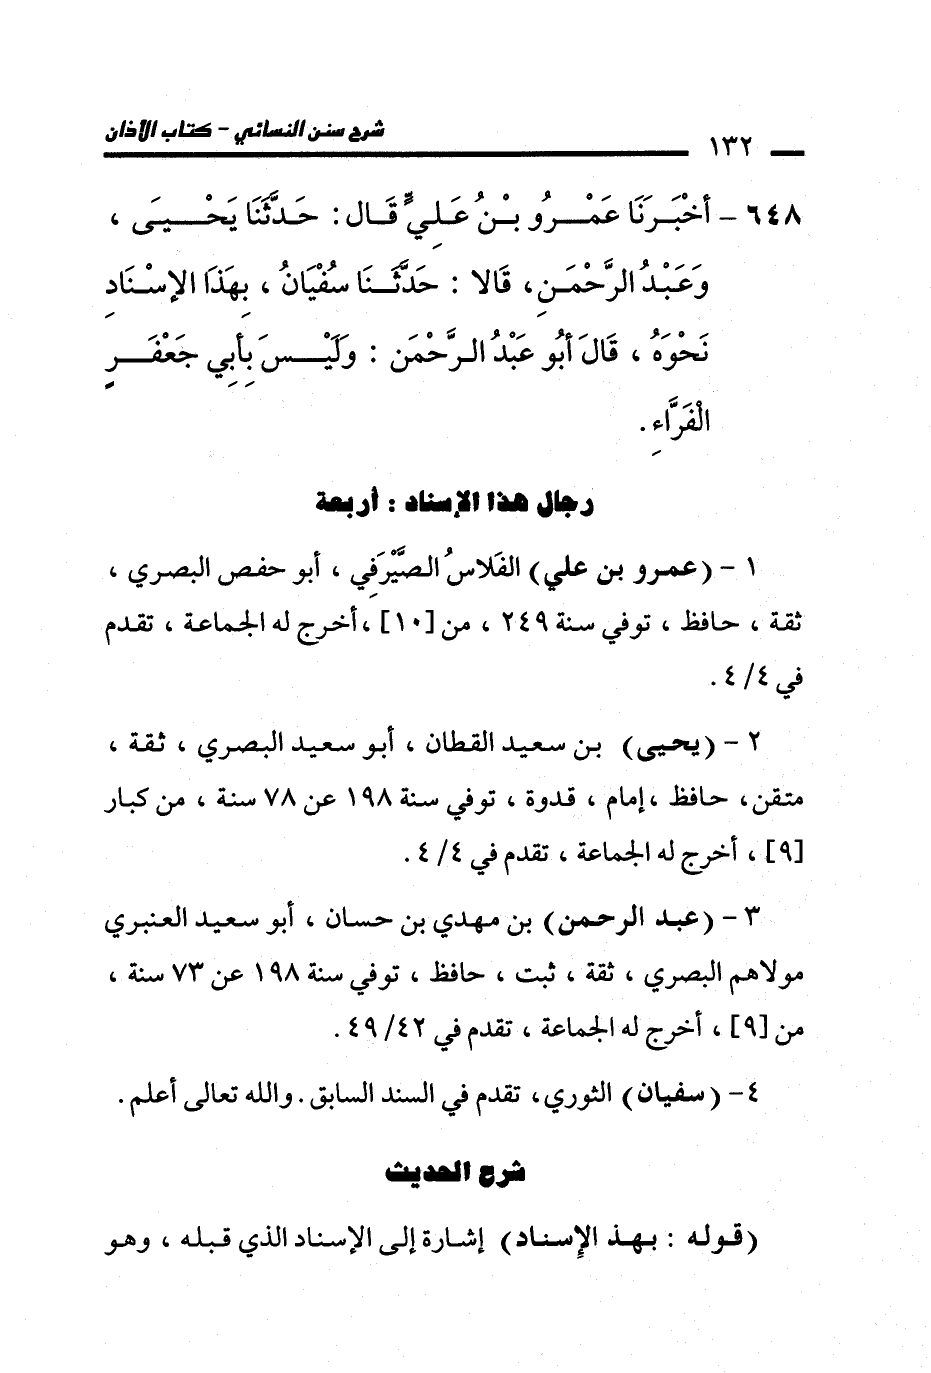 شرح سنن النسائي - كتاب الأذان
١٣٢
٦٤٨ - أَخْبَرَنَا عَمْرُو بْنُ عَلِيٍّ قَال : حَدَّثَنَا يَحْيَى ،
وَعَبْدُ الرَّحْمَنِ، قَالا : حَدَّثَنَا سُفْيَانُ ، بِهَذَا الإِسْنَادِ
نَحْوَهُ ، قَالَ أَبُو عَبْدُ الرَّحْمَن : وَلَيْسَ بِأَبِي جَعْفَرٍ
الْفَرَّاءِ .
رجال هذا الإسناد : أربعة
١ - (عمرو بن علي) الفَلاسُ الصَّيْرَفِي ، أبو حفص البصري ،
ثقة ، حافظ ، توفي سنة ٢٤٩ ، من [١٠] ،أخرج له الجماعة ، تقدم
في ٤/ ٤ .
٢ - (يحيى) بن سعيد القطان ، أبو سعيد البصري ، ثقة ،
متقن، حافظ ،إمام ، قدوة ، توفي سنة ١٩٨ عن ٧٨ سنة ، من كبار
[٩] ، أخرج له الجماعة ، تقدم في ٤/ ٤ .
٣ - (عبد الرحمن) بن مهدي بن حسان ، أبو سعيد العنبري
مولاهم البصري ، ثقة ، ثبت ، حافظ ، توفي سنة ١٩٨ عن ٧٣ سنة ،
من [٩] ، أخرج له الجماعة ، تقدم في ٤٢/ ٤٩ .
٤- (سفيان) الثوري، تقدم في السند السابق. والله تعالى أعلم.
شرح الحديث
(قوله : بهذ الإسناد) إشارة إلى الإسناد الذي قبله ، وهو